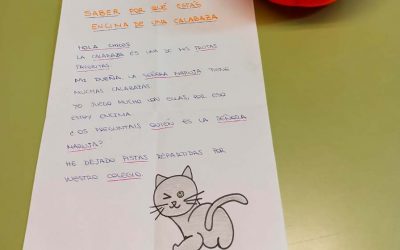 SABER POR QUÉ ESTÁS
ENCIMA DE UNA CALABAZA
HOLA CHICOS
LA CALABAZA ES UNA DE MIS FRUTAS
FAVORITAS.
MI DUEÑA, LA SEÑORA MARUJA TIENE
MUCHAS CALABAZAS
YO JUEGO MUCHO CON ELLAS, POR ESO
ESTOY ENCIMA.
¿OS PREGUNTAIS QUIÉN ES LA SEÑORA
MARUJA?
HE DEJADO PISTAS REPARTIDAS POR
NUESTRO COLEGIO.